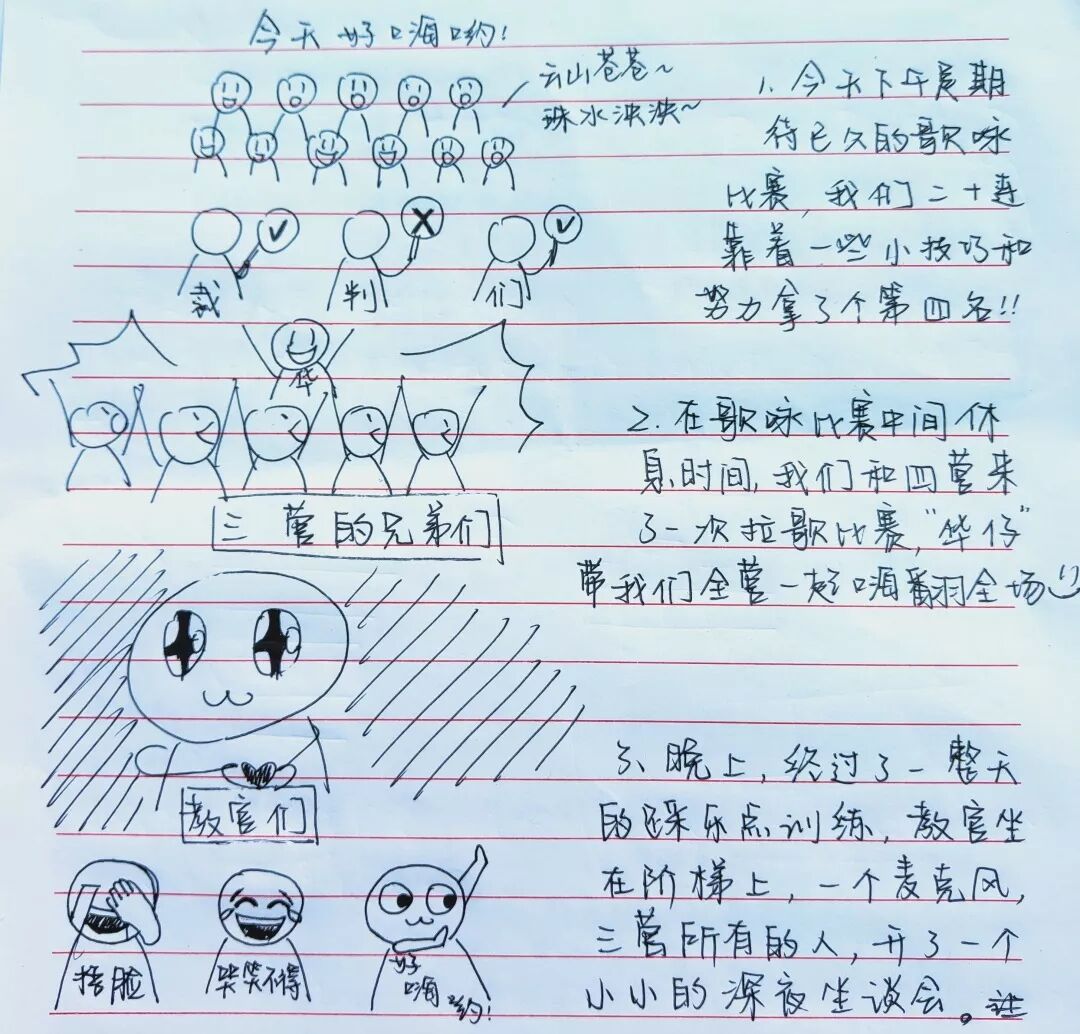 今天好嗨哟!
云山苍苍~
珠水泱泱~
裁 判 们
华
三营的兄弟们
教官们
捂脸
哭笑不得
好嗨哟!
1. 今天下午是期
待已久的歌咏
比赛,我们二十连
靠着一些小技巧和
努力拿了个第四名!!
2. 在歌咏比赛中间休
息时间,我们和四营来
了一次拉歌比赛,“华仔”
带我们全营一起嗨翻全场
3、晚上,经过了一整天
的踩乐点训练,教官坐
在阶梯上,一个麦克风,
三营所有的人,开了一个
小小的深夜坐谈会。